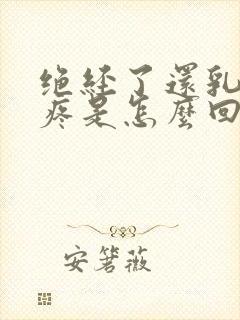 绝经了還乳
疼是怎麼回
安箬薇